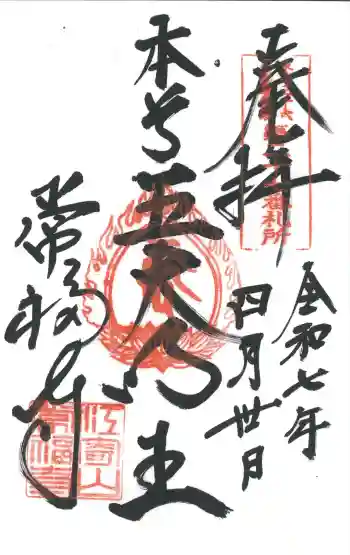 奉拝
令和七年
四月丗日
本尊
五大明王
常福寺
番札所
常福寺